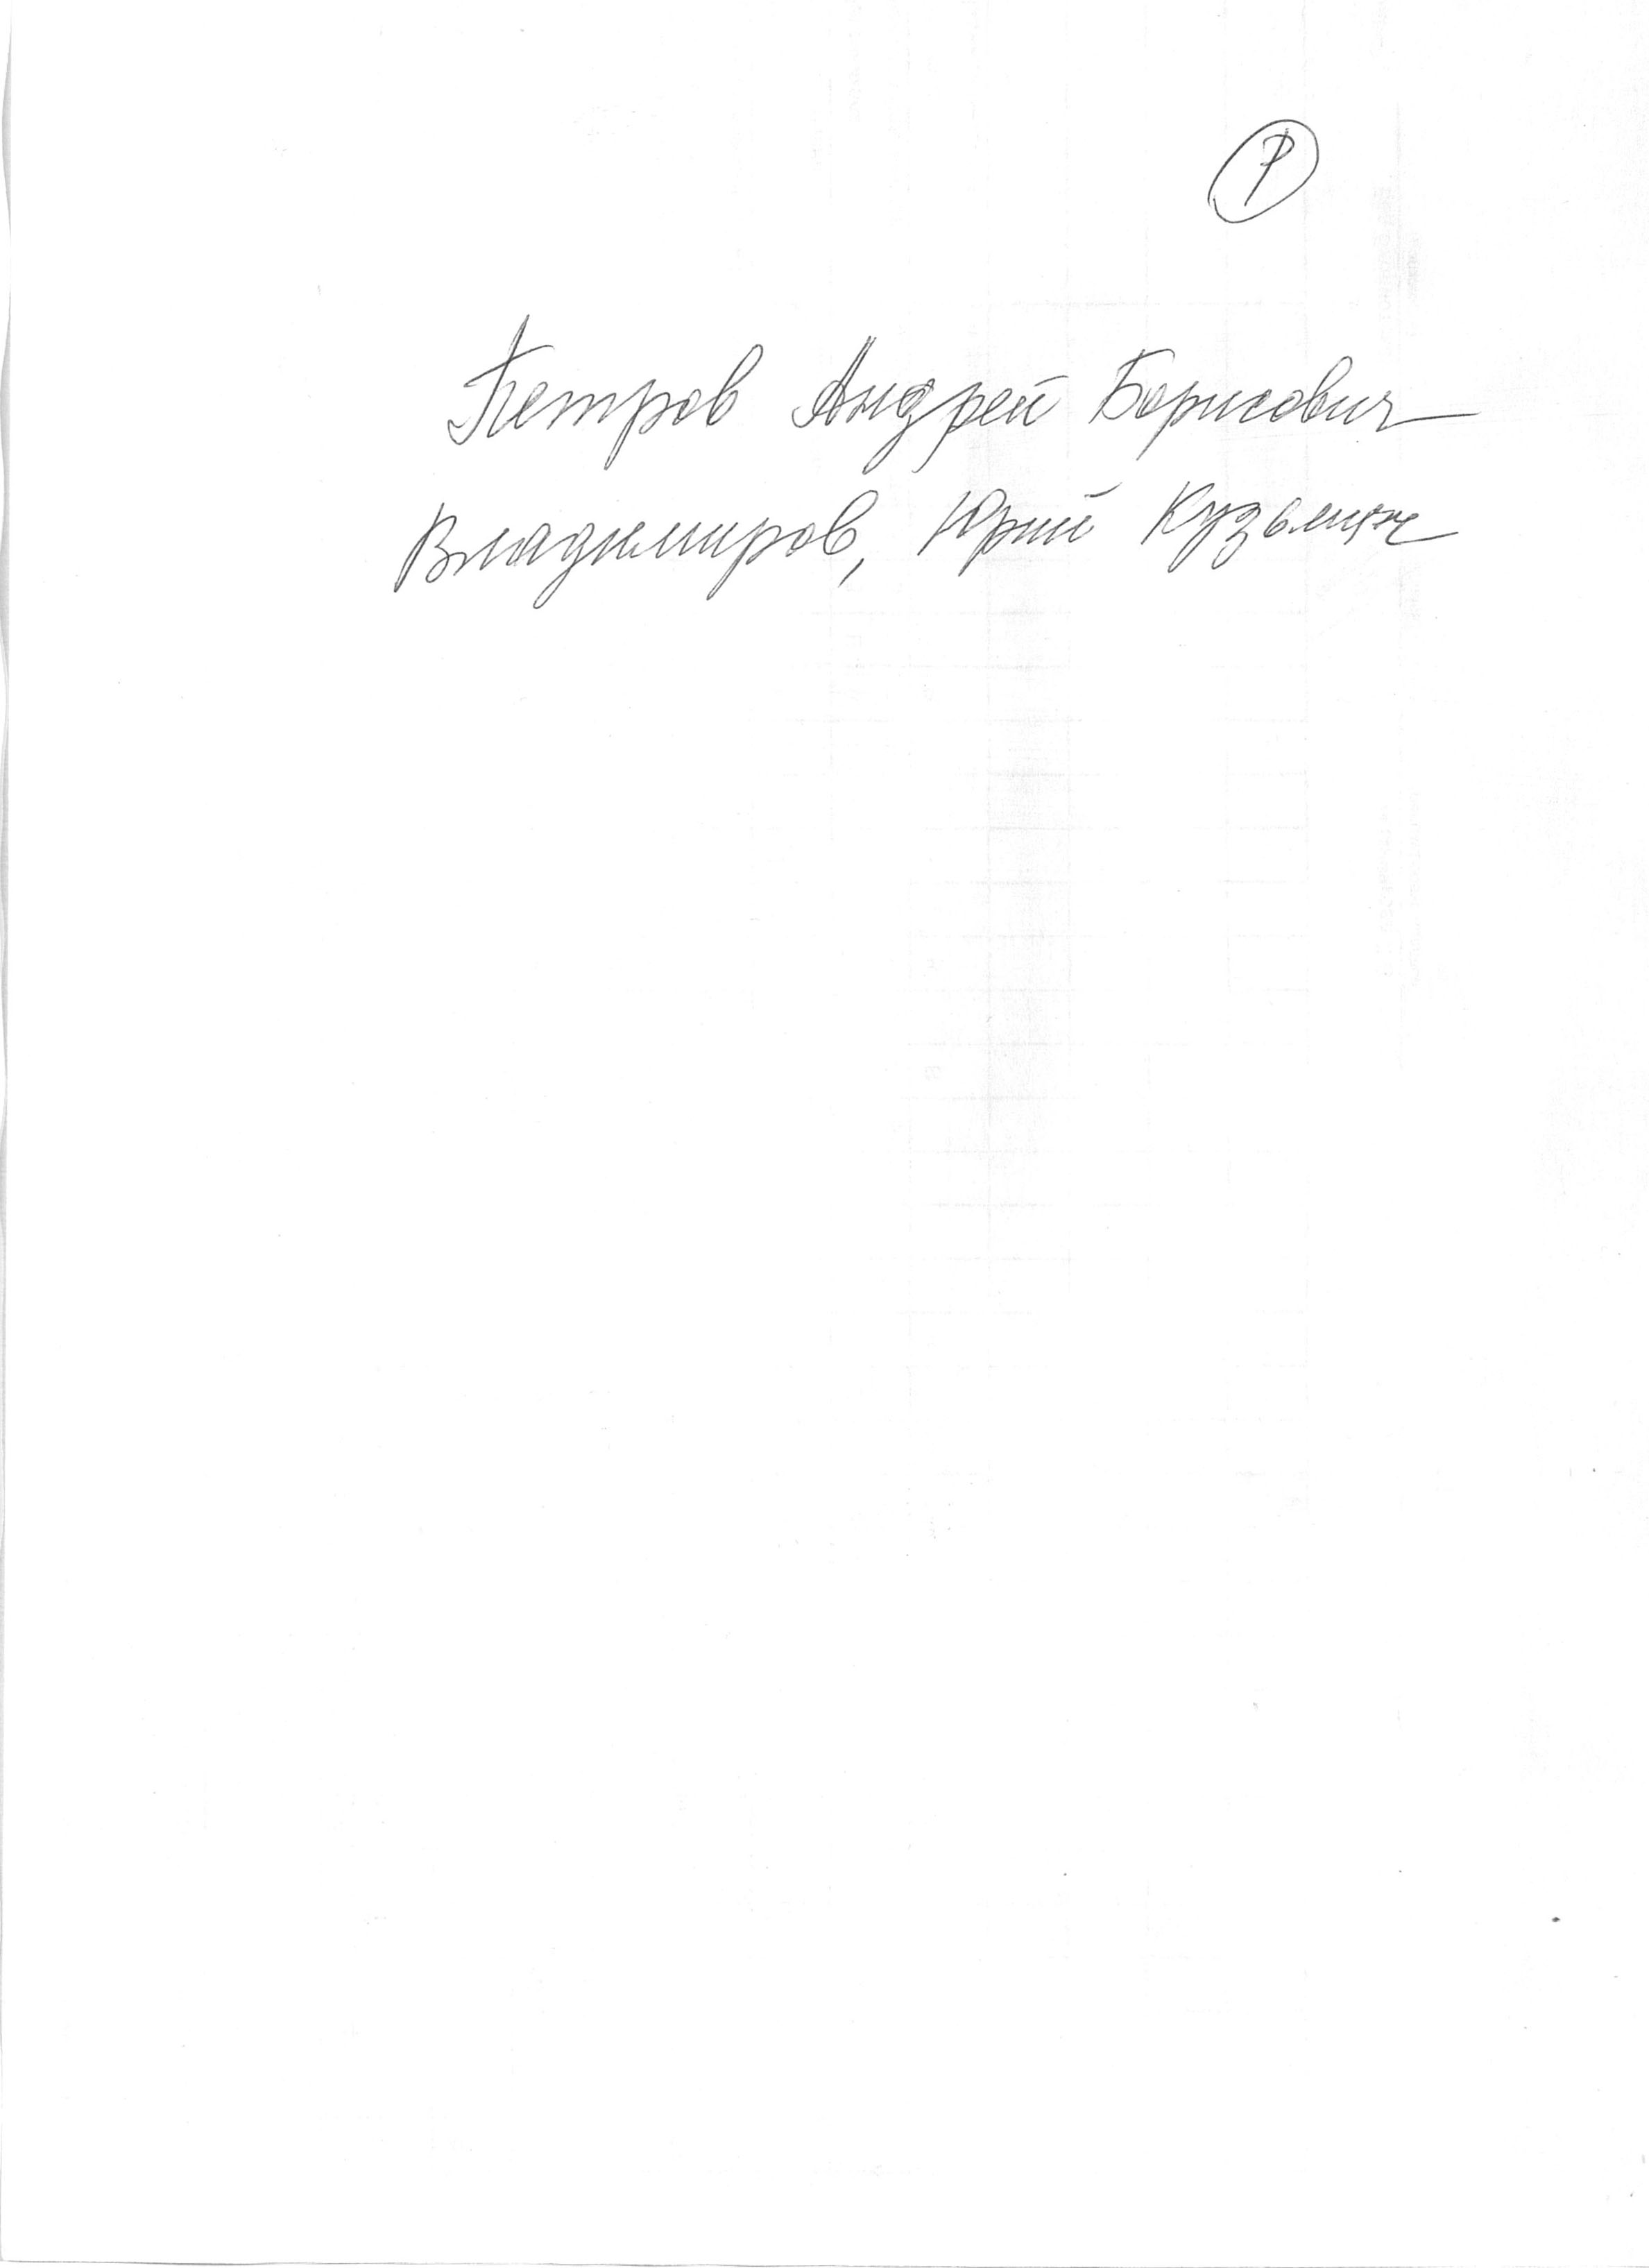 Р
Петров Андрей Борисович
Владимиров, Юрий Кузьмич